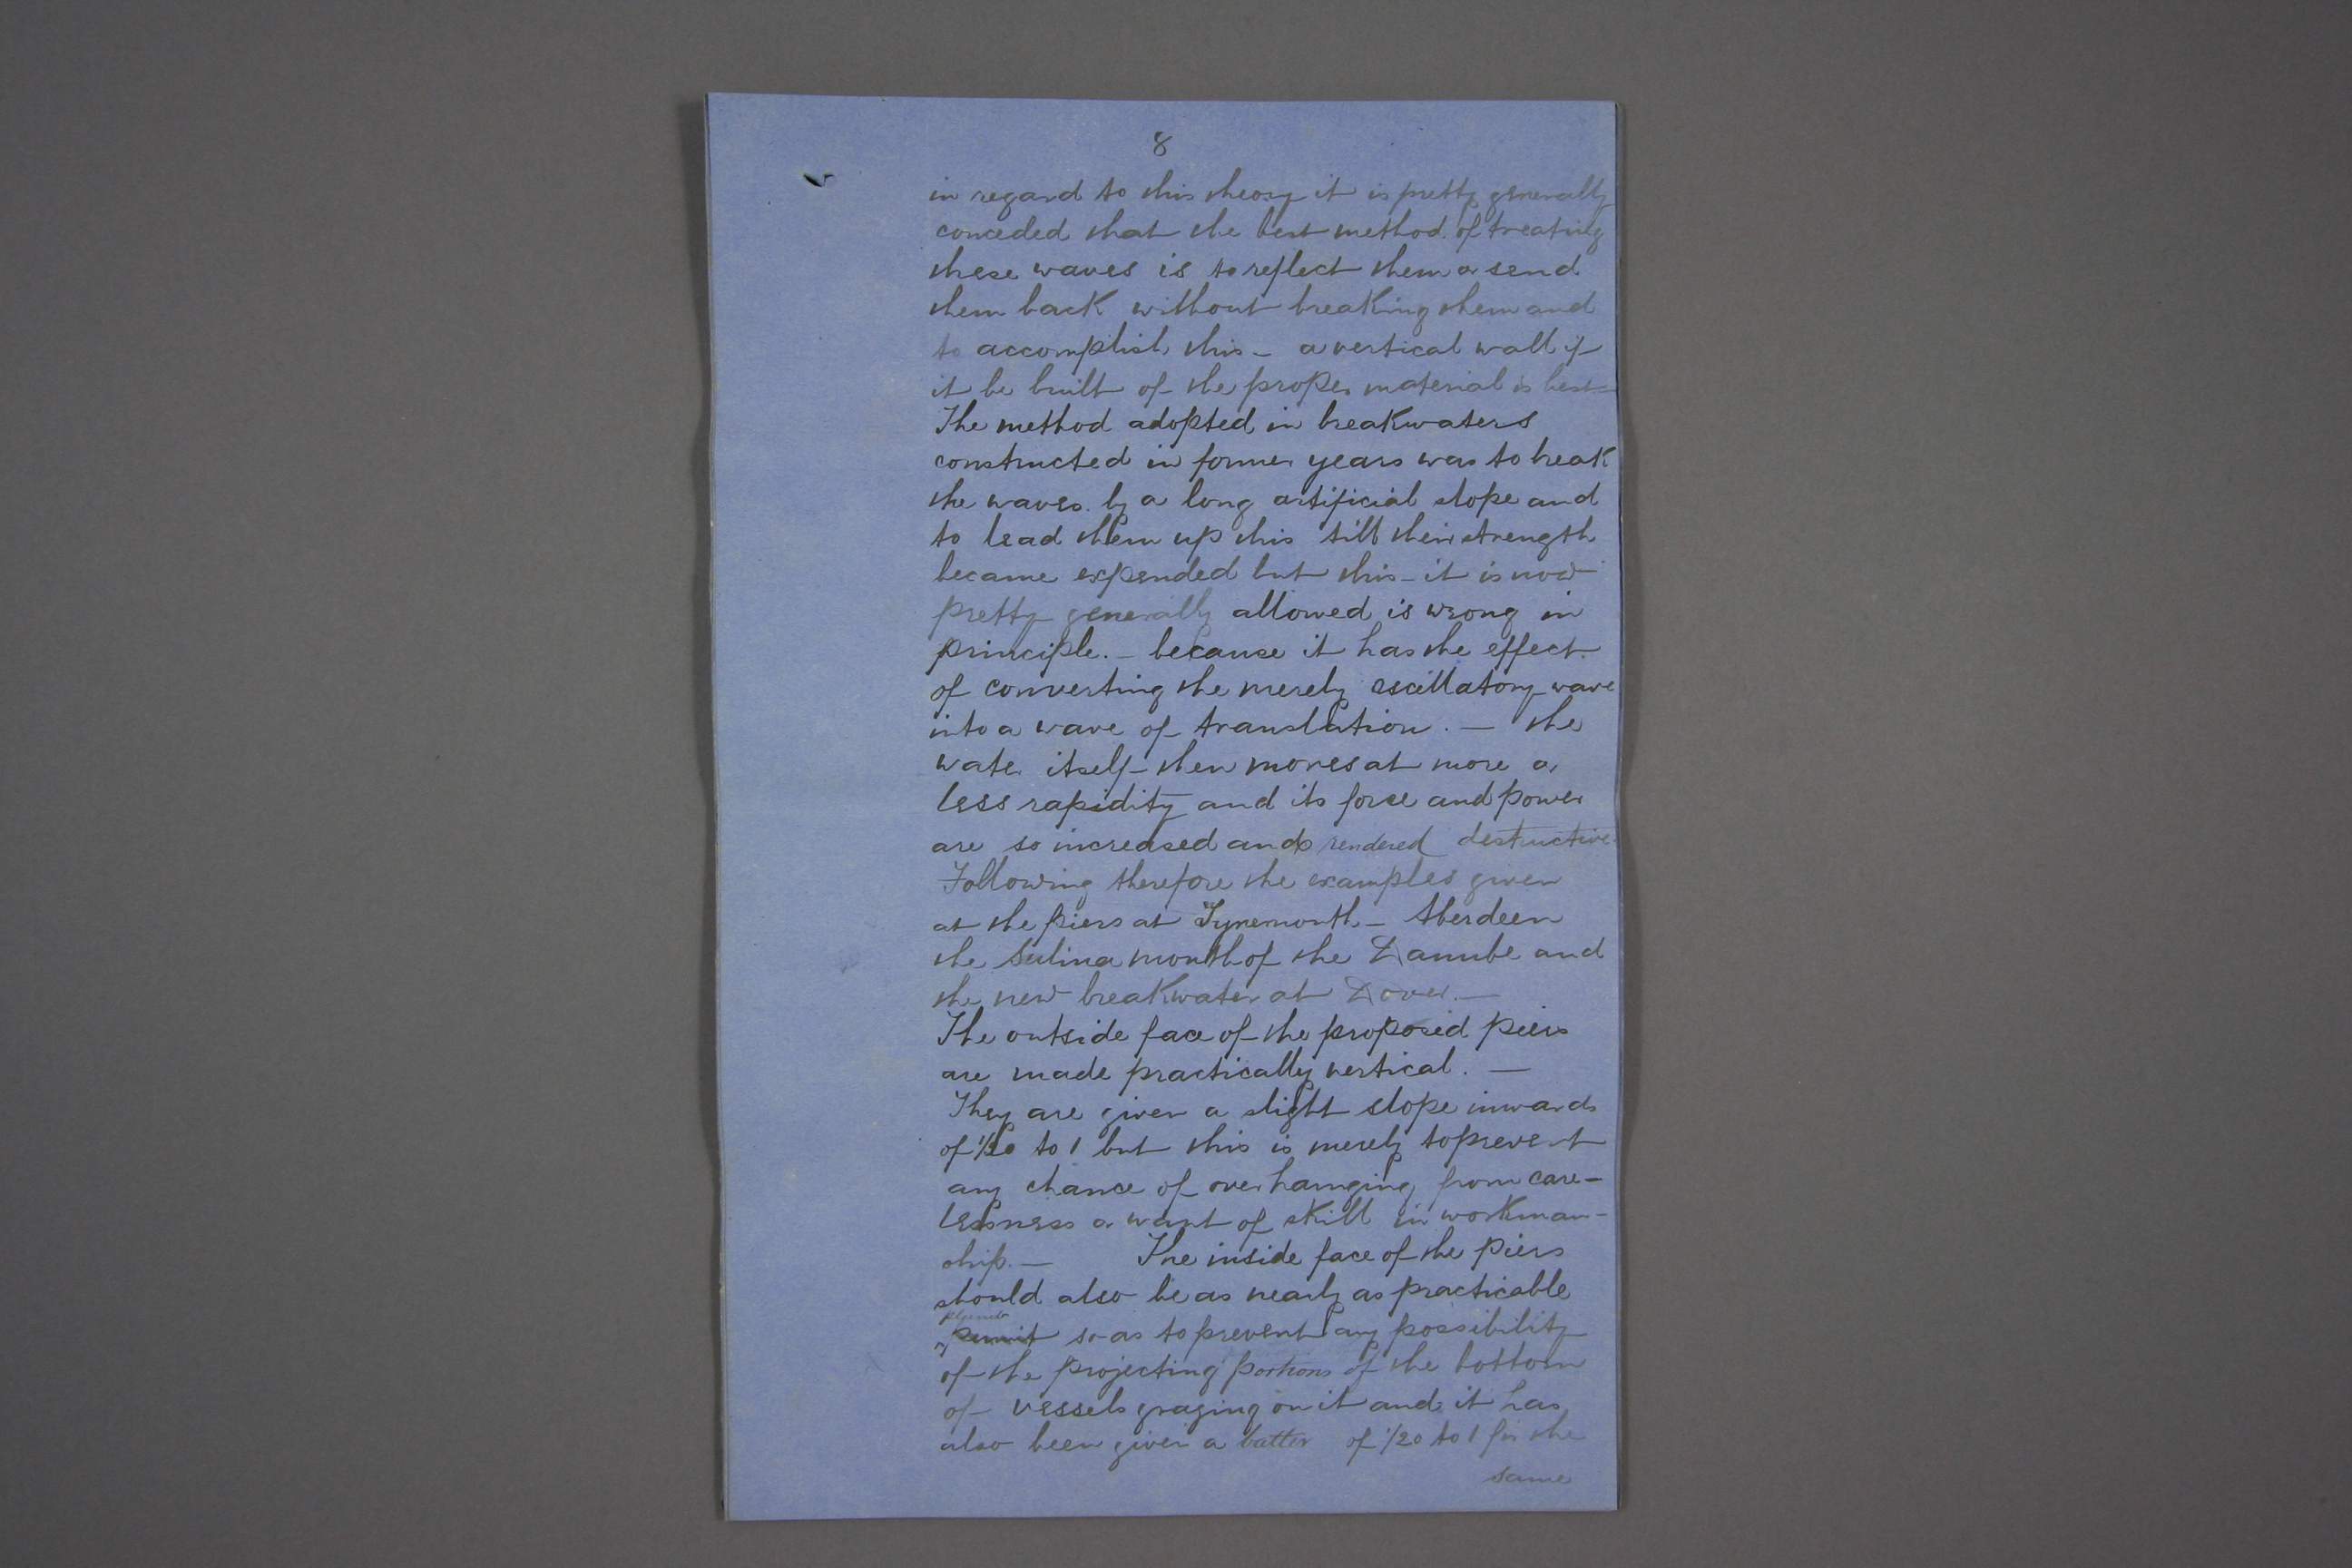 8
in regard to this theory it is pretty generally
conceded that the best method of treating
these waves is to reflect them or send
them back without breaking them and
to accomplish this – a vertical wall if
it be built of the proper material is best
The method adopted in breakwaters
constructed in former years was to break
the waves by a long artificial slope and
to lead them up this till their strength
became expended but this – it is now
pretty generally allowed is wrong in
principle. – because it has the effect
of converting the merely oscillatory wave
into a wave of translation. — the
water itself then moves at more or
less rapidity and its force and power
are so increased and rendered destructive.
Following therefore the examples given
at the piers at Tynemouth – Aberdeen
the Sulina mouth of the Danube and
the new breakwater at Dover. —
The outside face of the proposed piers
are made practically vertical. —
They are given a slight slope inwards
of 1/20 to 1 but this is merely to prevent
any chance of overhanging from care-
lessness or want of skill in workman-
ship. — The inside face of the piers
should also be as nearly as practicable
so as to prevent any possibility
of the projecting portions of the bottom
of vessels grazing on it and it has
also been given a batter of 1/20 to 1 for the
same